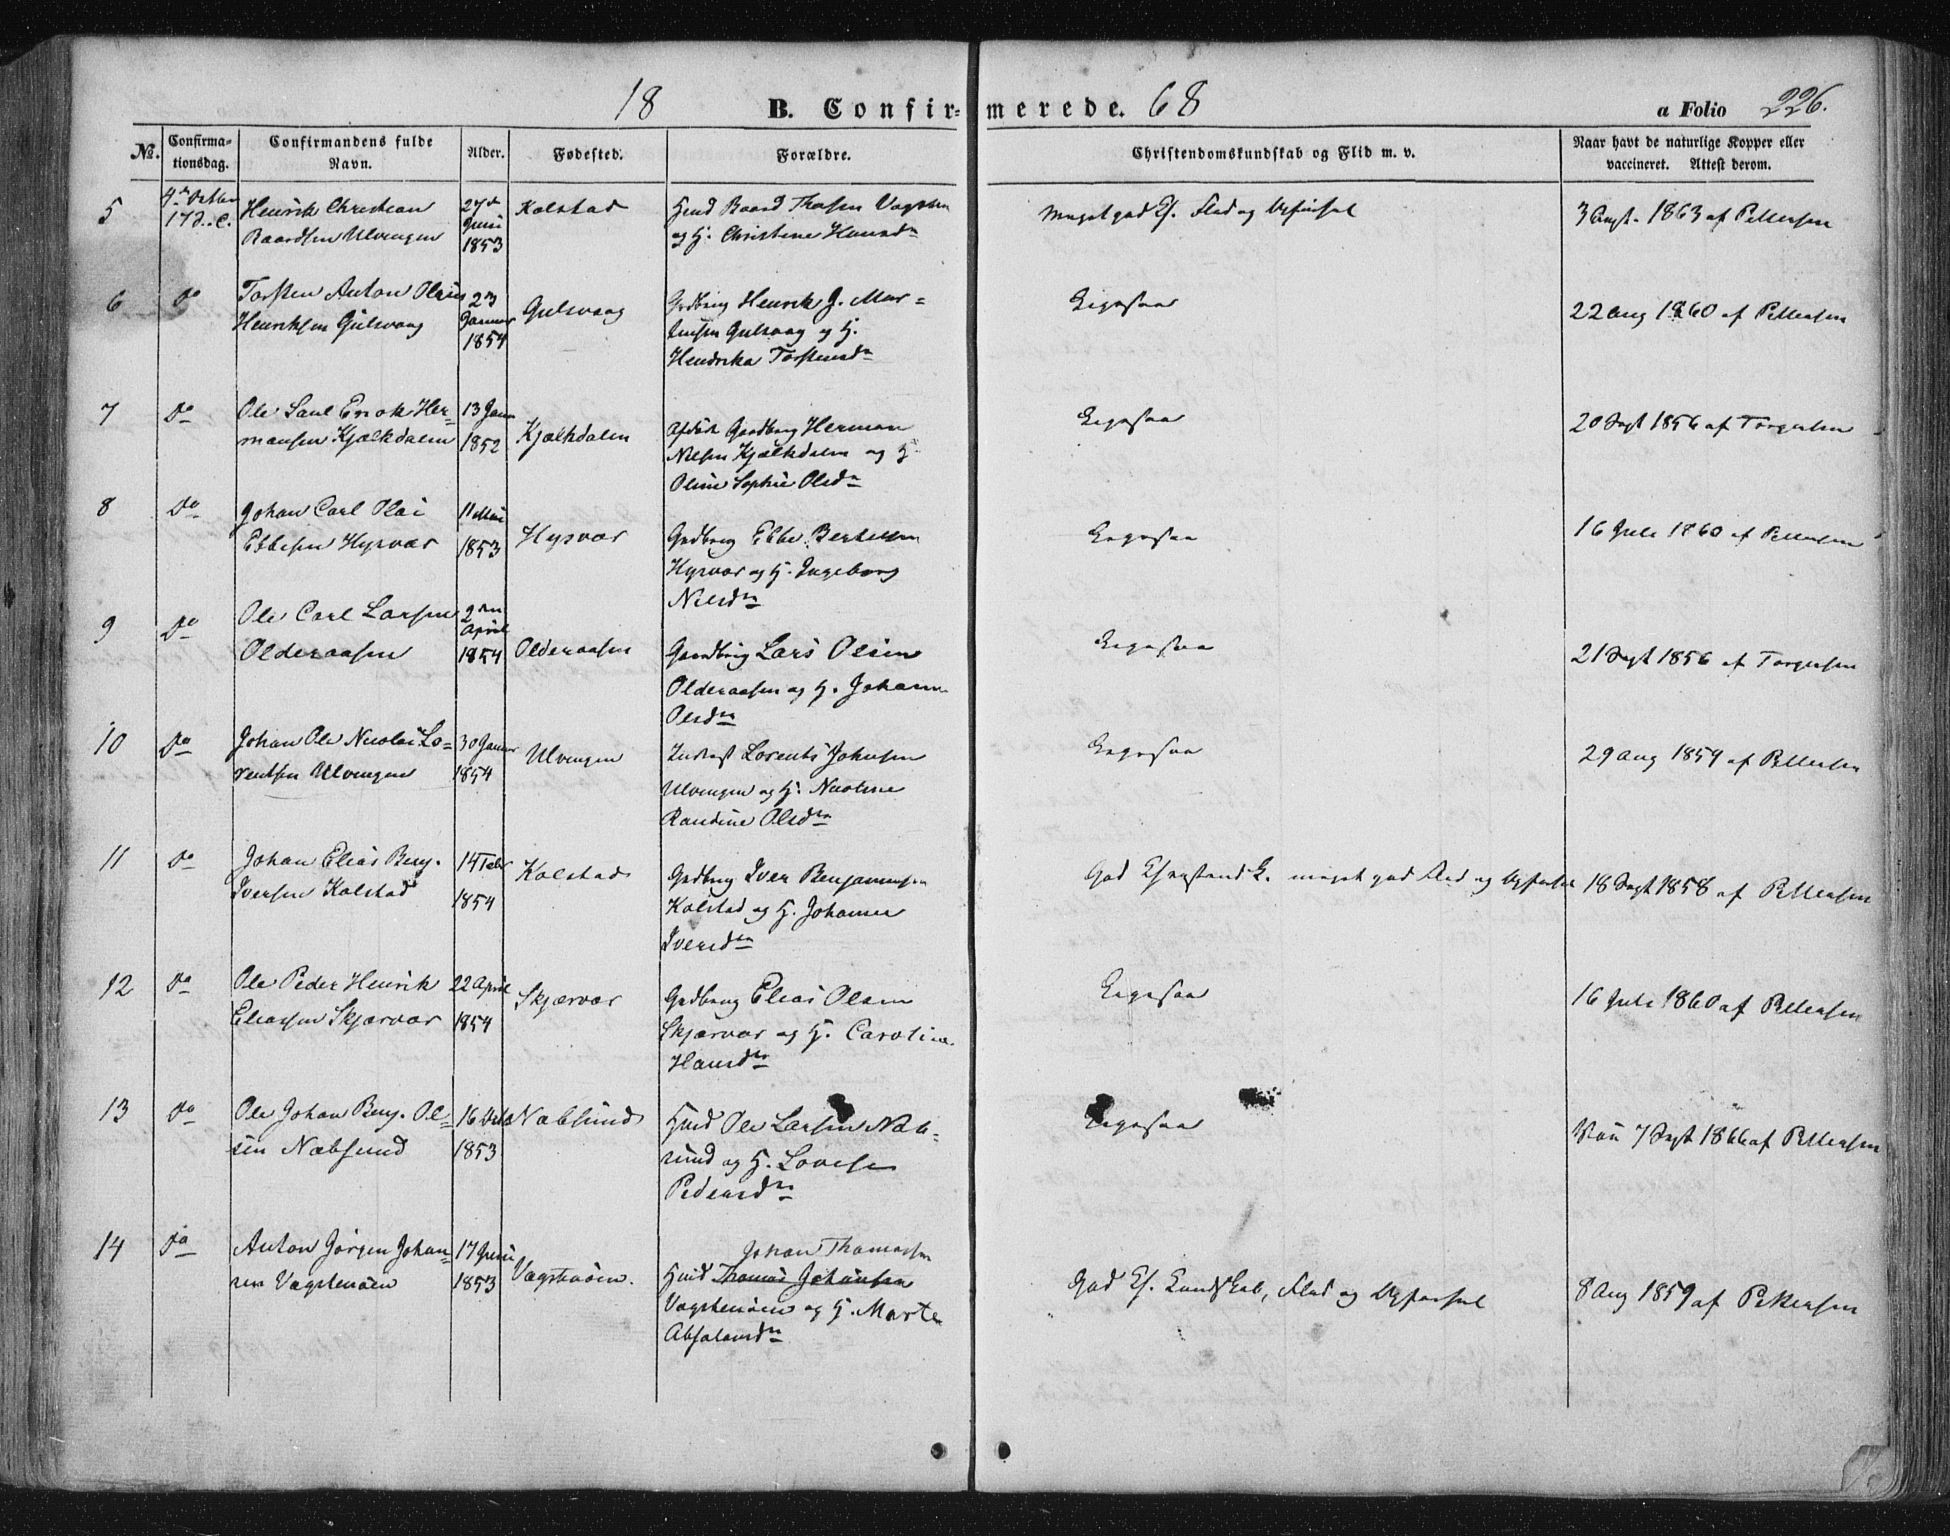 18 B. Confir- merede. 68 a Folio 226.
No. Confirma-tionsdag. Confirmandens fulde Navn. Alder. Fødested. Forældre. Christendomskundskab og Flid m. v. Naar havt de naturlige Kopper eller vaccineret. Attest derom.
5
Henrik Christian
Baardsen Ulvengen
27d
Juni
1853
Kolstad
Baard
og H. Christine Hansdn
Meget god
og Opførsel
1863 af Pettersen
6 Do
Torsten Anton Olaus
Henriksen Gulsvaag
23
Januar
1854
Gulsvaag
Grdbrug Henrik J. Mor=
tensen Gulsvaag og H.
Hendrika Torstensdn
Ligesaa
22 Aug 1860 af Pettersen
7 Do
Ole Paul Enok Her=
mansen Kjælkdalen
13 Janu
1852
Kjælkdalen
Gaardbrg Herman
Nilsen Kjælkdalen og H.
Oline Sophie Olsdn
Ligesaa
20 Sept 1856 af Torgersen
8 Do
Johan Carl
Ebbesen Hysvær
11 Mai
1853
Hysvær
Grdbrug Ebbe Bertelsen
Hysvær og H. Ingeborg
Nilsdn
Ligesaa
16 Juli 1860 af Pettersen
9 Do
Ole Carl Larsen
Olderaasen
2den
April
1854
Olderaasen
Gaardbrug Lars Olsen
Olderaasen og H. Johanna
Olsdn
Ligesaa
21 Sept 1856 af Torgersen
10 Do
Johan Ole Nicolai Lo=
rentsen Ulvengen
30 Januar
1854
Ulvengen
Inderst Lorents Johnsen
Ulvengen og H. Nicoline
Randine Olsdn
Ligesaa
29 Aug 1859 af Pettersen
11 Do
Johan Elias Benj.
Iversen Kolstad
14 Febr
1854
Kolstad
Grdbrug Iver Benjaminsen
Kolstad og H. Johanna
Iversdn
God
meget god Flid og Opførsel
18 Sept 1858 af Pettersen
12 Do
Ole Peder Henrik
Eliassen Skjærvær
22 April
1854
Skjærvær
Grdbrug Elias Olsen
Skjærvær og H. Carolina
Hansdn
Ligesaa
16 Juli 1860 af Pettersen
13 Do
Ole Johan Benj. Ol=
sen Næbsund
16
1853
Næbsund
Huusd Ole Larsen Næb=
sund og H. Lovise
Pedersdn
Ligesaa
7 Sept 1866 af Pettersen
14 Do
Anton Jørgen Johan=
sen Vægstenøen
17 Juni
1853
Vægstenøen.
Johan Thomassen
Huusd Thomas Johansen
Vægstenøen og H. Marte
Absalonsdn
God Ch. Kundskab, Flid og Opførsel
8 Aug 1859 af Pettersen